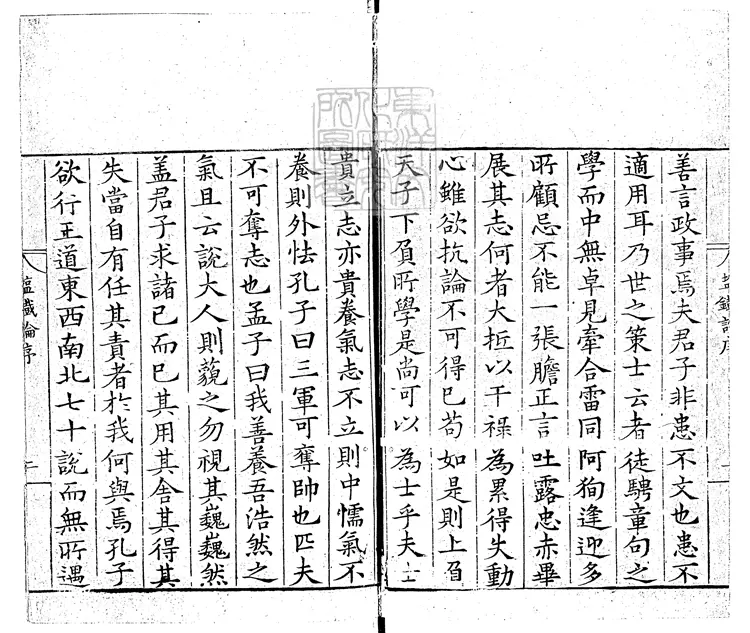 善言政事焉夫君子非患不文也患不
適用耳乃世之策士云者徒騁章句之
學而中無卓見牽合雷同阿狥逢迎多
所顧忌不能一張膽正言吐露忠赤畢
展其志何者大抵以干祿為累得失動
心雖欲抗論不可得已苟如是則上負
天子下負所學是尚可以為士乎夫士
貴立志亦貴養氣志不立則中懦氣不
養則外怯孔子曰三軍可奪帥也匹夫
不可奪志也孟子曰我善養吾浩然之
氣且云說大人則藐之勿視其巍巍然
盖君子求諸已而已其用其舍其得其
失當自有任其責者於我何與焉孔子
欲行王道東西南北七十說而無所遇
塩鐵論序